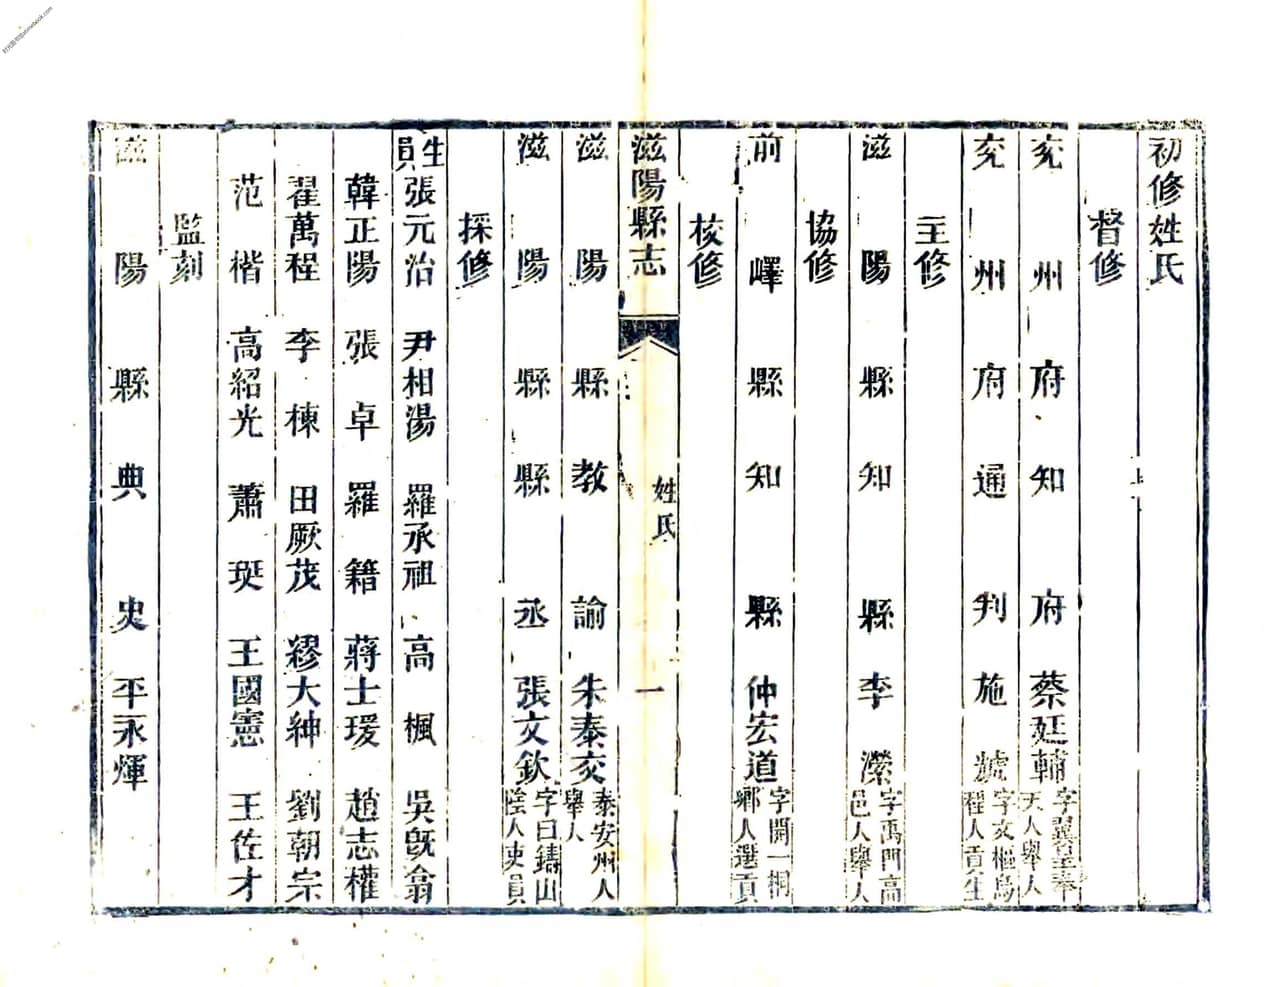 初修姓氏
督修
兖州府知府蔡廷輔字翼皇奉天人舉人
兖州府通判施 字文樞烏程人貢生
主修
滋陽縣知縣李濚字禹門高邑人舉人
協修
前嶧縣知縣仲宏道字開一桐鄉人選貢
校修
滋陽縣志 姓氏 一
滋陽縣教諭朱泰交泰安州人舉人
滋陽縣縣丞張文欽字曰鑄山陰人吏員
採修
生員張元治 尹相湯 羅承祖 高楓 吳旣翕
韓正陽 張卓 羅籍 蔣士瑗 趙志權
翟萬程 李棟 田厥茂 繆大紳 劉朝宗
范楷 高紹光 蕭珽 王國憲 王佐才
監刻
滋陽縣典史平永煇